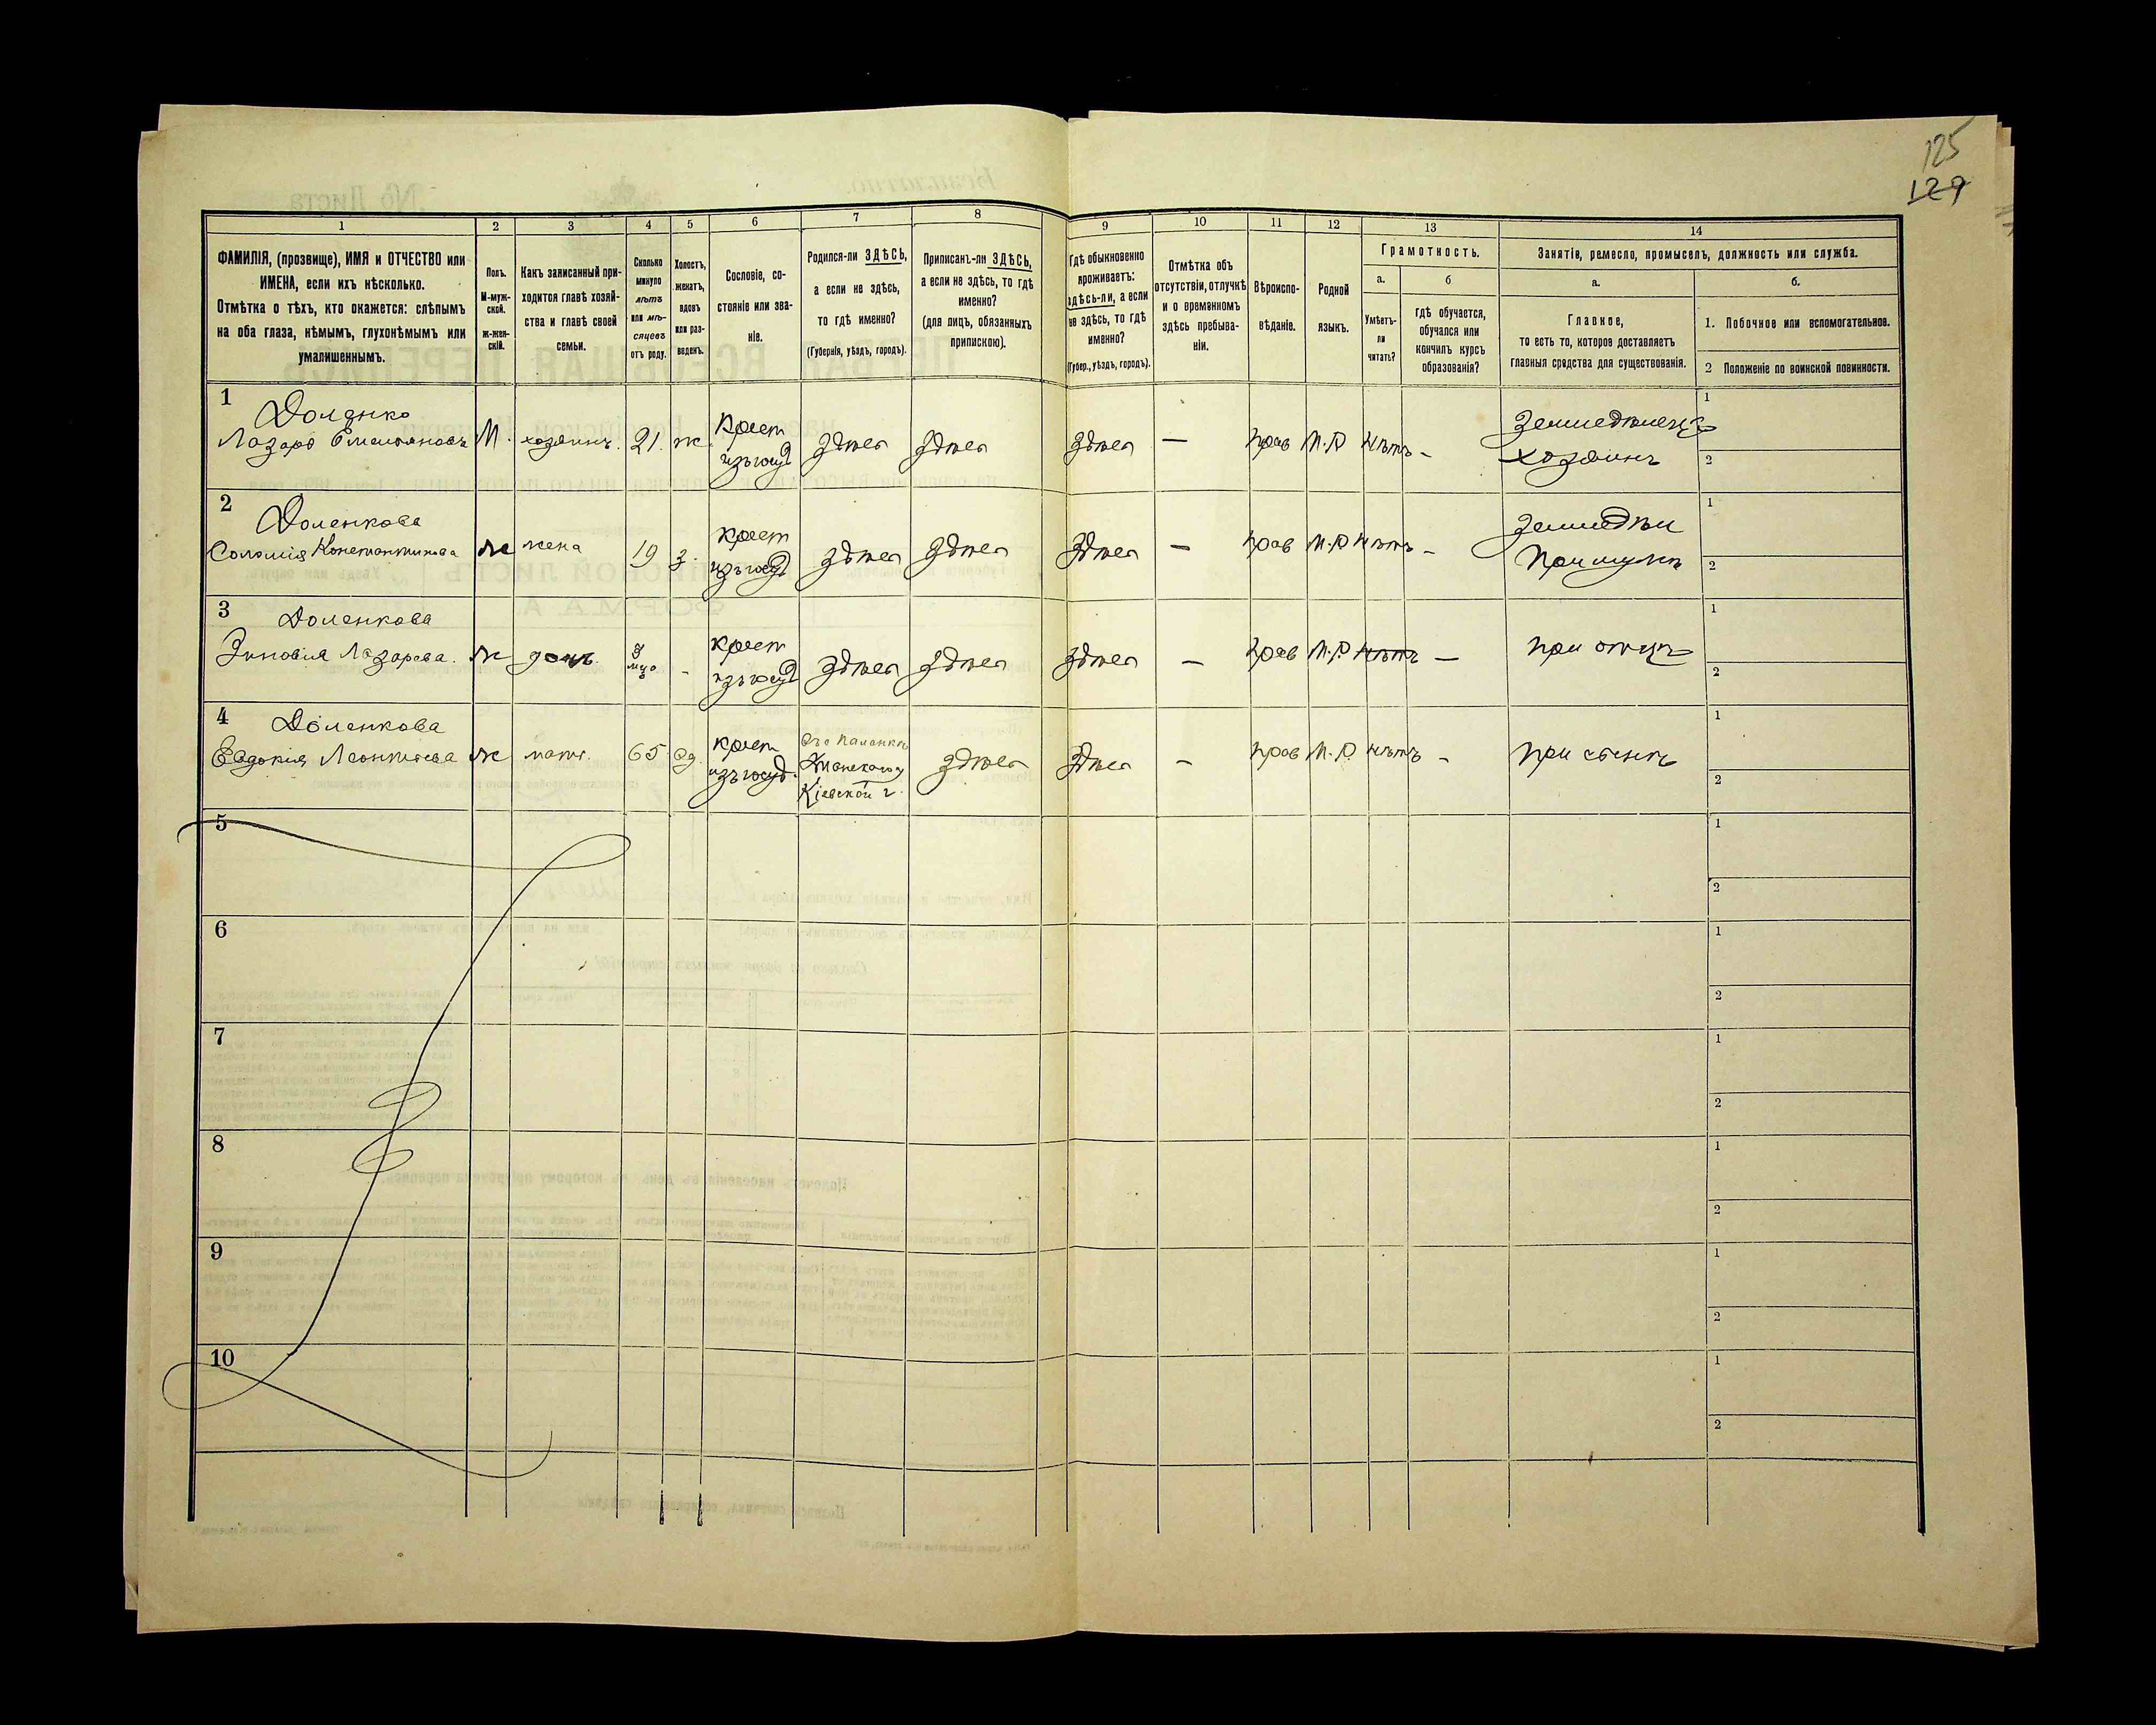 125
129
1
2
3
4
5
6
7
8
9
10
11
12
13
14
ФАМИЛІЯ, (прозвище), ИМЯ и ОТЧЕСТВО или
ИМЕНА, если ихъ нѣсколько.
Отмѣтка о тѣхъ, кто окажется: слѣпымъ
на оба глаза, нѣмымъ, глухонѣмымъ или
умалишеннымъ.
Полъ.
М-муж-
ской.
ж-жен-
скій.
Какъ записанный при-
ходится главѣ хозяй-
ства и главѣ своей
семьи.
Сколько
минуло
лѣтъ
или мѣ-
сяцевъ
отъ роду.
Холостъ,
женатъ,
вдовъ
или раз-
веденъ.
Сословіе, со-
стояніе или зва-
ніе.
Родился-ли ЗДѢСЬ,
а если не здѣсь,
то гдѣ именно?
(Губернія, уѣздъ, городъ).
Приписанъ-ли ЗДѢСЬ,
а если не здѣсь, то гдѣ
именно?
(для лицъ, обязанныхъ
припискою).
Гдѣ обыкновенно
проживаетъ:
здѣсь-ли, а если
не здѣсь, то гдѣ
именно?
(Губер., уѣздъ, городъ).
Отмѣтка объ
отсутствіи, отлучкѣ
и о временномъ
здѣсь пребыва-
ніи.
Вѣроиспо-
вѣданіе.
Родной
языкъ.
Грамотность.
а.
Умѣетъ-
ли
читать?
б
гдѣ обучается,
обучался или
кончилъ курсъ
образованія?
Занятіе, ремесло, промыселъ, должность или служба.
а.
Главное,
то есть то, которое доставляетъ
главныя средства для существованія.
б.
1. Побочное или вспомогательное.
2 Положеніе по воинской повинности.
1
Доленко
Лазарь Емельяновъ
М.
хозяинъ.
21.
ж.
Крест
изъ госуд
здѣсь
здѣсь
здѣсь
—
прав
М.Р
нѣтъ
-
Земледѣлецъ
хозяинъ
1
2
2
Доленкова
Соломія Константинова
ж
жена
19
з.
крест
изъ госуд
здѣсь
здѣсь
здѣсь
—
прав
М.Р
нѣтъ
-
земледѣл
при мужѣ
1
2
3
Доленкова
Зиновія Лазарева.
ж
дочь.
-
крест
изъ госуд
здѣсь
здѣсь
здѣсь
—
прав
М.Р.
нѣтъ
—
при отцѣ
1
2
4
Доленкова
Евдокія Леонтіева
ж
мать.
65
вд.
крест
изъ госуд.
Кіевской г.
здѣсь
здѣсь
-
прав
М.Р.
нѣтъ
-
при сынѣ
1
2
5
1
2
6
1
2
7
1
2
8
1
2
9
1
2
10
1
2